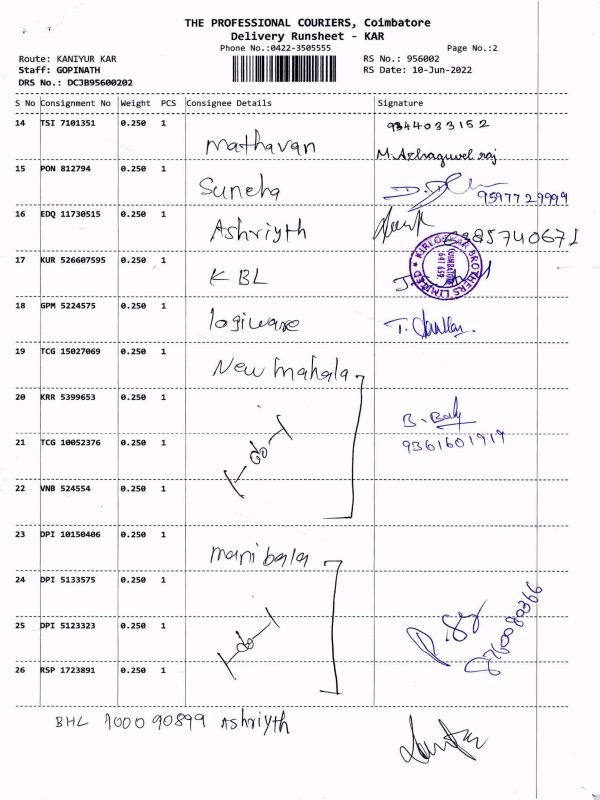 THE PROFESSIONAL COURIERS, Coimbatore
Delivery Runsheet - KAR
Phone No.:0422-3505555 Page No.:2
Route: KANIYUR KAR RS No.: 956002
Staff: GOPINATH RS Date: 10-Jun-2022
DRS No.: DCJB95600202
S No Consignment No Weight PCS Consignee Details Signature
14 TSI 7101351 0.250 1 Mathavan 9344033152
M. Azhaguvel raj
15 PON 812794 0.250 1 Suneha 9597729999
16 EDQ 11730515 0.250 1 Ashriyth 85740671
17 KUR 526607595 0.250 1 KBL
KIRLOSKAR BROTHERS LIMITED ★ COIMBATORE 641 659.
18 GPM 5224575 0.250 1 logiware T.
19 TCG 15027069 0.250 1 New Mahala
20 KRR 5399653 0.250 1 -do- B. Baly
21 TCG 10052376 0.250 1 9361601919
22 VNB 524554 0.250 1
23 DPI 10150406 0.250 1 mani bala
24 DPI 5133575 0.250 1
25 DPI 5123323 0.250 1 -do- 8760080366
26 RSP 1723891 0.250 1
BHL 7000 90899 Ashriyth